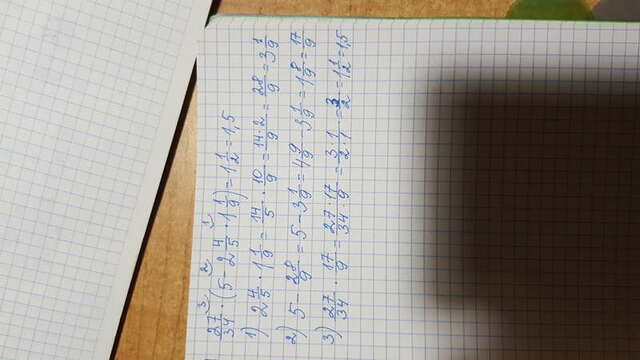 27/34 · (5 - 2 4/5 · 1 1/9) = 1 1/2 = 1,5
1) 2 4/5 · 1 1/9 = 14/5 · 10/9 = 14·2/9 = 28/9 = 3 1/9
2) 5 - 28/9 = 5 - 3 1/9 = 4 9/9 - 3 1/9 = 1 8/9 = 17/9
3) 27/34 · 17/9 = 27·17/34·9 = 3·1/2·1 = 3/2 = 1 1/2 = 1,5